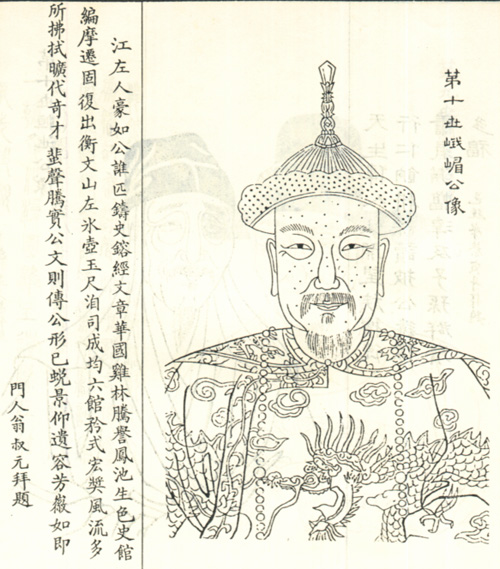 第十世峨嵋公像
江左人豪如公誰匹鑄史鎔經文章華國雞林騰譽鳳池生色史館
編摩遷固復出衡文山左氷壺玉尺洎司成均六館矜式宏奬風流多
所拂拭曠代奇才蜚聲騰實公文則傳公形已蛻景仰遺容芳薇如即
門人翁叔元拜題